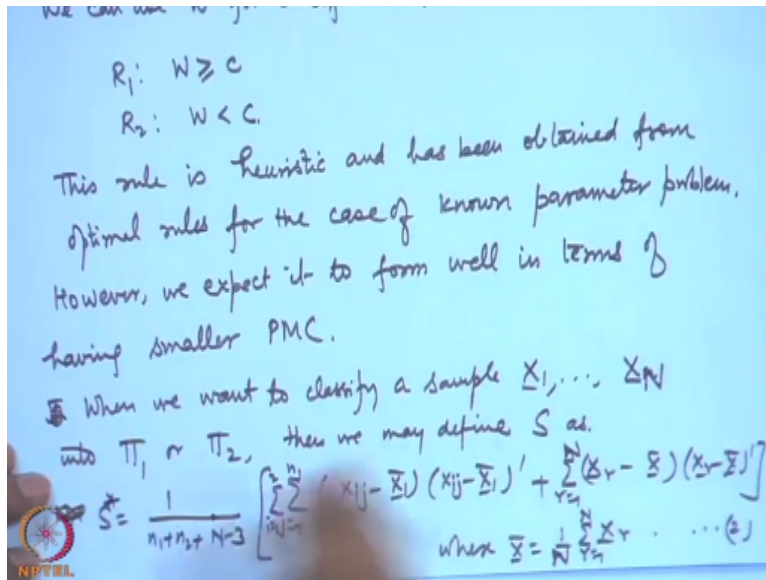 We can use W for
R₁: W ≥ C
R₂: W < C.
This rule is heuristic and has been obtained from
optimal rules for the case of known parameter problem.
However, we expect it to form well in terms of
having smaller PMC.
When we want to classify a sample X̲₁, ..., X̲_N
into Π₁ or Π₂, then we may define S as.
S* = 1/(n₁+n₂+N-3) [Σ_{i=1}^{2} Σ_{j=1}^{n_i} (x_ij - X̲̄_i) (x_ij - X̲̄_i)' + Σ_{r=1}^{N} (X̲_r - X̲̄) (X̲_r - X̲̄)']
where X̲̄ = 1/N Σ_{r=1}^{N} X̲_r . ...(2)
NPTEL